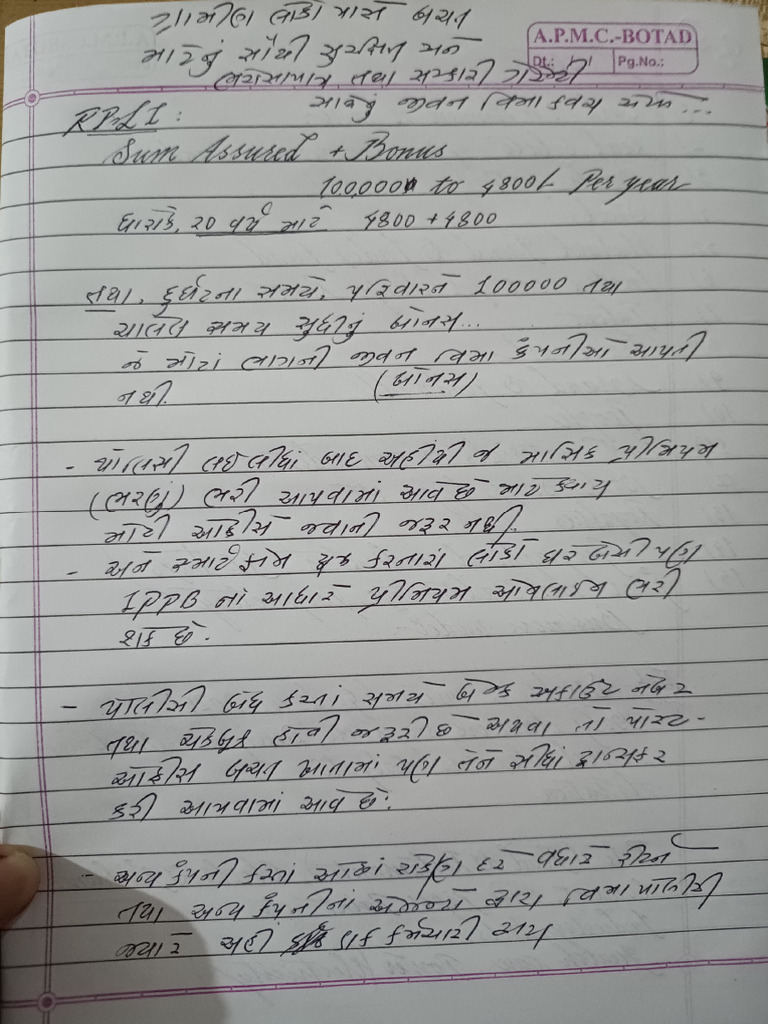 ગ્રામીણ લોકો માટે બચત
A.P.M.C.-BOTAD
માટેનું સૌથી સુરક્ષિત અને
Dt.: / / Pg.No.:
ભરોસાપાત્ર તથા સરકારી ગેરંટી
સાથેનું જીવન વિમા કવચ એટલે...
RPLI :
Sum Assured + Bonus
100,000 to 4800/- Per year
ધારોકે, 20 વર્ષ માટે 4800 + 4800
તથા, દુર્ઘટના સમયે, પરિવારને 100000 તથા
ચાલેલ સમય સુધીનું બોનસ...
જે મોટાં ભાગની જીવન વિમા કંપનીઓ આપતી
નથી. (બોનસ)
- પોલિસી લઈ લીધાં બાદ અહીંથી જ માસિક પ્રીમિયમ
(ભરણું) ભરી આપવામાં આવે છે માટે ક્યાય
મોટી ઓફીસે જવાની જરૂર નથી.
- અને સ્માર્ટ ફોન યુઝ કરનારા લોકો ઘરે બેસી પણ
IPPB નાં આધારે પ્રીમિયમ ઓનલાઈન ભરી
શકે છે.
- પોલીસી બંધ કરતાં સમયે બેન્ક અકાઉંટ નંબર
તથા ચેકબુક હોવી જરૂરી છે અથવા તો પોસ્ટ-
ઓફીસ બચત ખાતામાં પણ તેને સીધાં ટ્રાન્સફર
કરી આપવામાં આવે છે.
- અન્ય કંપની કરતાં ઓછાં રોકાણ દરે વધારે રીટર્ન
તથા અન્ય કંપનીનાં એજન્ટો દ્વારા વિમા પોલીસી
જ્યારે અહીં ડાક કર્મચારી દ્વારા